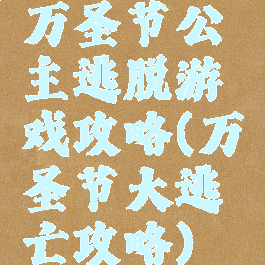 万圣节公
主逃脱游
戏攻略(万
圣节大逃
亡攻略)